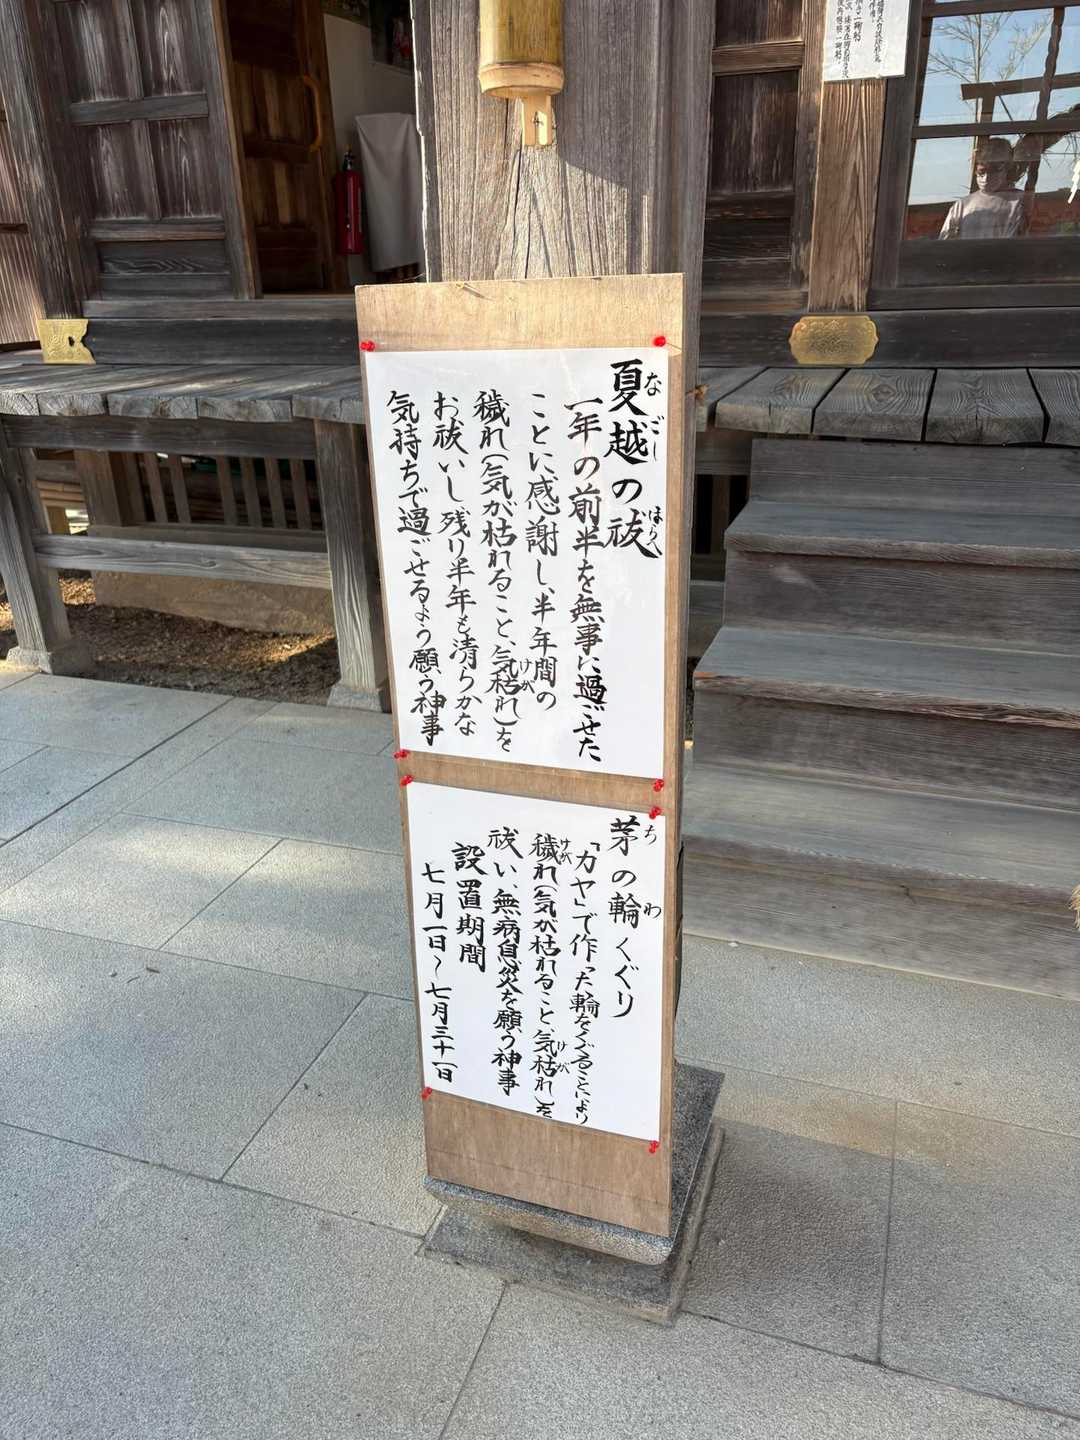 夏越の祓
なごし
はらへ
一年の前半を無事に過ごせた
ことに感謝し、半年間の
穢れ(気が枯れること、気枯れ)を
けが
お祓いし残り半年も清らかな
気持ちで過ごせるよう願う神事
茅の輪くぐり
ち
わ
「カヤ」で作った輪をくぐることにより
穢れ(気が枯れること、気枯れ)を
けが
けが
祓い、無病息災を願う神事
設置期間
七月一日~七月三十一日